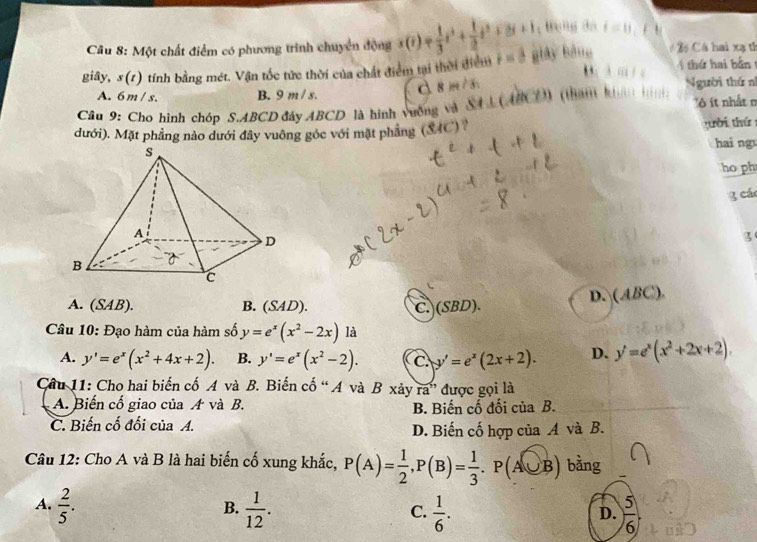 Câu 8: Một chất điểm có phương trình chuyển động s(t) = 1/3 t³ + 1/2 t² + 2t + 1, trong đó
giây, s(t) tính bằng mét. Vận tốc tức thời của chất điểm tại thời điểm giây bằng
A. 6 m / s. B. 9 m / s. C. 8 m / s.
Câu 9: Cho hình chóp S.ABCD đáy ABCD là hình vuông và SA ⊥ (ABCD) (tham khảo hình
dưới). Mặt phẳng nào dưới đây vuông góc với mặt phẳng (SAC) ?
t² + t + 2
4 + 2 + 2
= 8
(2x - 2)
S
A
D
B
C
A. (SAB). B. (SAD). C. (SBD). D. (ABC).
Câu 10: Đạo hàm của hàm số y = eˣ(x² − 2x) là
A. y' = eˣ(x² + 4x + 2). B. y' = eˣ(x² − 2). C. y' = eˣ(2x + 2). D. y' = eˣ(x² + 2x + 2).
Câu 11: Cho hai biến cố A và B. Biến cố “ A và B xảy ra” được gọi là
A. Biến cố giao của A và B. B. Biến cố đối của B.
C. Biến cố đối của A. D. Biến cố hợp của A và B.
Câu 12: Cho A và B là hai biến cố xung khắc, P(A) = 1/2, P(B) = 1/3. P(A∪B) bằng
A. 2/5. B. 1/12. C. 1/6. D. 5/6.
Cả hai xạ th
thứ hai bắn
Người thứ n
ít nhất
thứ
hai ngư
ho ph
g các
g